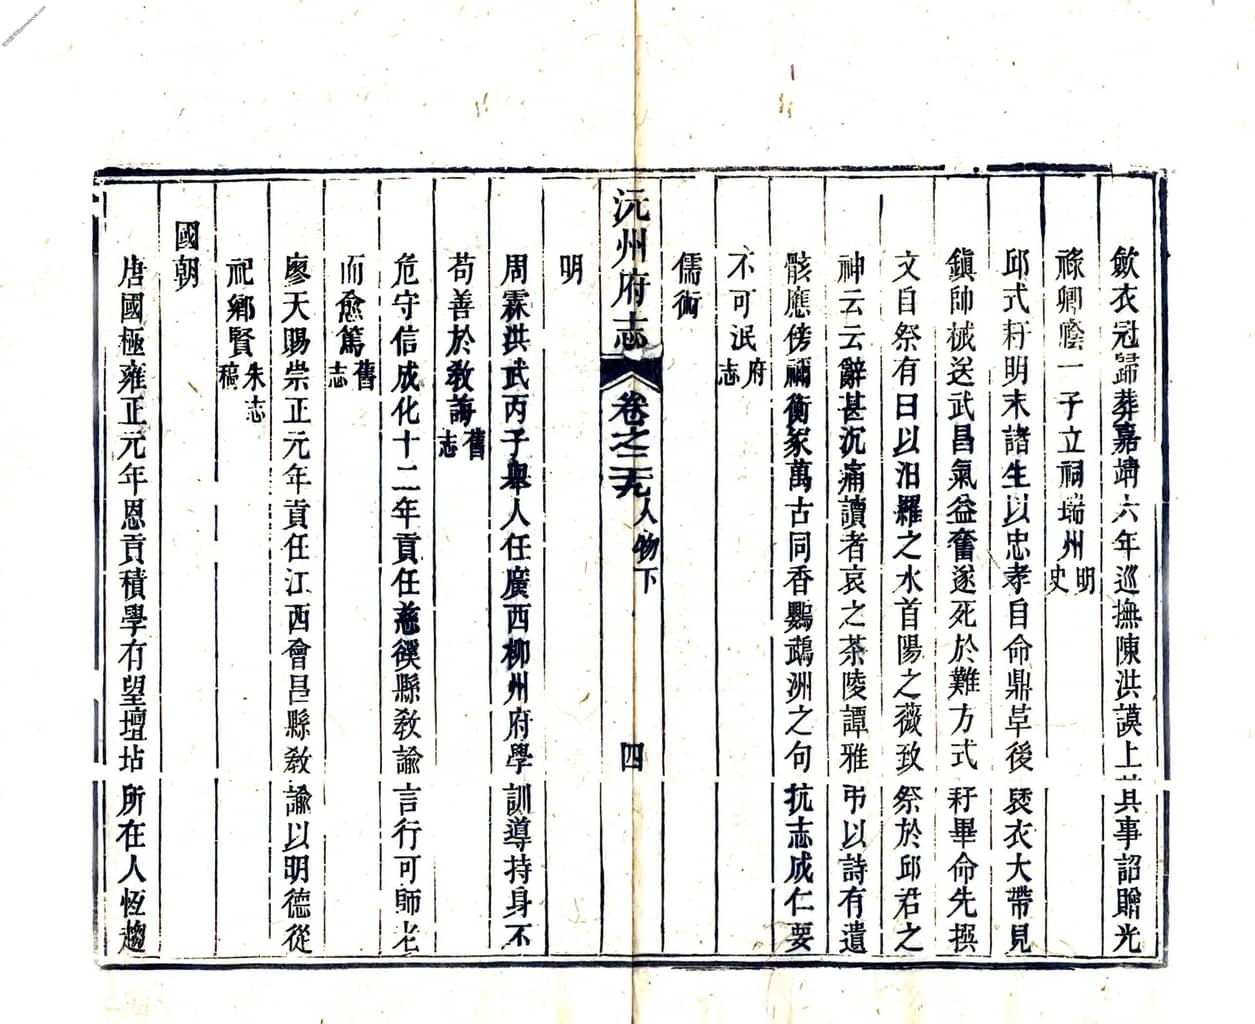 歛衣冠歸葬嘉靖六年巡撫陳洪謨上其事詔贈光
祿卿廕一子立祠瑞州明史
邱式耔明末諸生以忠孝自命鼎革後裂衣大帶見
鎭帥械送武昌氣益奮遂死於難方式耔畢命先撰
文自祭有曰以汨羅之水首陽之薇致祭於邱君之
神云云辭甚沉痛讀者哀之茶陵譚雅弔以詩有遺
骸應傍禰衡冢萬古同香鸚鵡洲之句抗志成仁要
不可泯府志
儒術
沅州府志 卷之二十九 人物下 四
明
周霖洪武丙子舉人任廣西柳州府學訓導持身不
苟善於敎誨舊志
危守信成化十二年貢任慈谿縣敎諭言行可師老
而愈篤舊志
廖天賜崇正元年貢任江西會昌縣敎諭以明德從
祀鄕賢朱志稿
國朝
唐國極雍正元年恩貢積學有望壇坫所在人恆趨